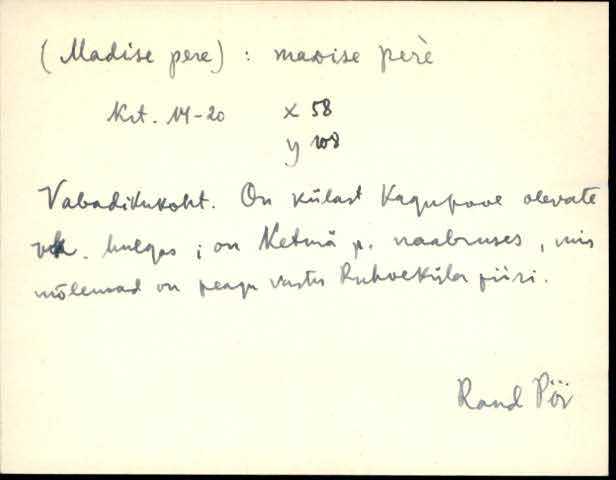 (Madise pere) : maᴅise perè
Krt. 14-20 x 58
y 108
Vabadikukoht. On külast Kagupool olevate
vk. hulgas ; on Ketmä p. naabruses, mis
mõlemad on peagu vastu Ruhveküla piiri.
Rand Pöi